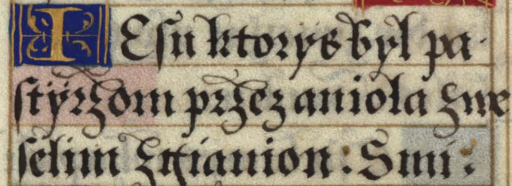 IEsu ktorys był pa-
stÿrzom przez aniola zwe
selim zgiauion : Smi :